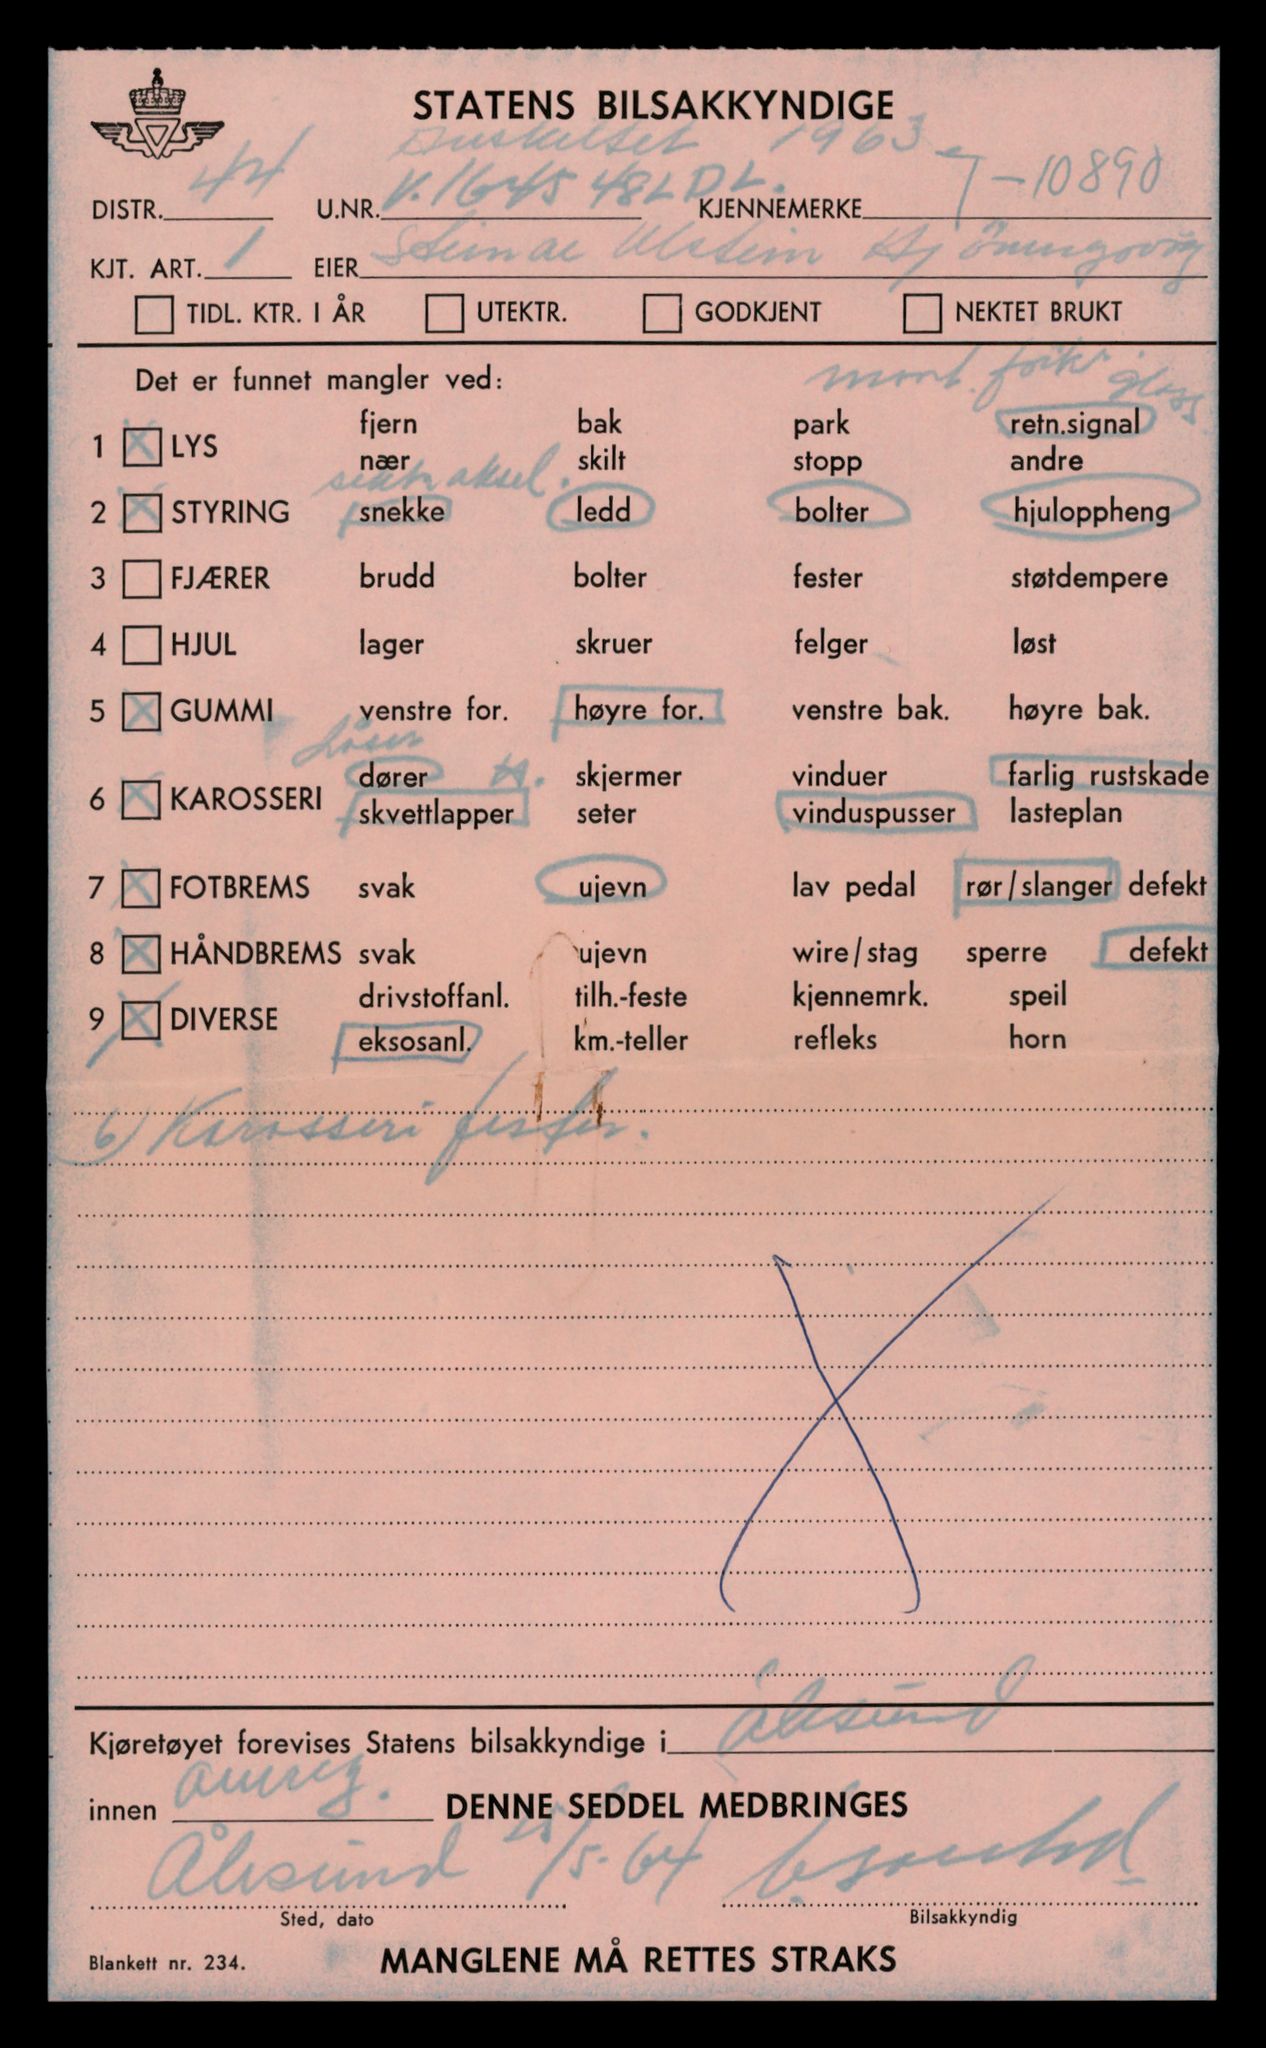 STATENS BILSAKKYNDIGE
1963
DISTR. 44 U.NR. V.1645 48L DL. KJENNEMERKE T-10890
KJT. ART. 1 EIER Steinar Ulstein Hj
TIDL. KTR. I ÅR UTEKTR. GODKJENT NEKTET BRUKT
Det er funnet mangler ved: glass
1 X LYS fjern bak park retn.signal
nær skilt stopp andre
aksel.
2 X STYRING snekke ledd bolter hjuloppheng
3 FJÆRER brudd bolter fester støtdempere
4 HJUL lager skruer felger løst
5 X GUMMI venstre for. høyre for. venstre bak. høyre bak.
Låser
6 X KAROSSERI dører H. skjermer vinduer farlig rustskade
skvettlapper seter vinduspusser lasteplan
7 X FOTBREMS svak ujevn lav pedal rør/slanger defekt
8 X HÅNDBREMS svak ujevn wire/stag sperre defekt
9 X DIVERSE drivstoffanl. tilh.-feste kjennemrk. speil
eksosanl. km.-teller refleks horn
6) Karosseri fester.
Kjøretøyet forevises Statens bilsakkyndige i Ålesund
innen omreg. DENNE SEDDEL MEDBRINGES
Ålesund 25/5-64
Sted, dato Bilsakkyndig
Blankett nr. 234. MANGLENE MÅ RETTES STRAKS